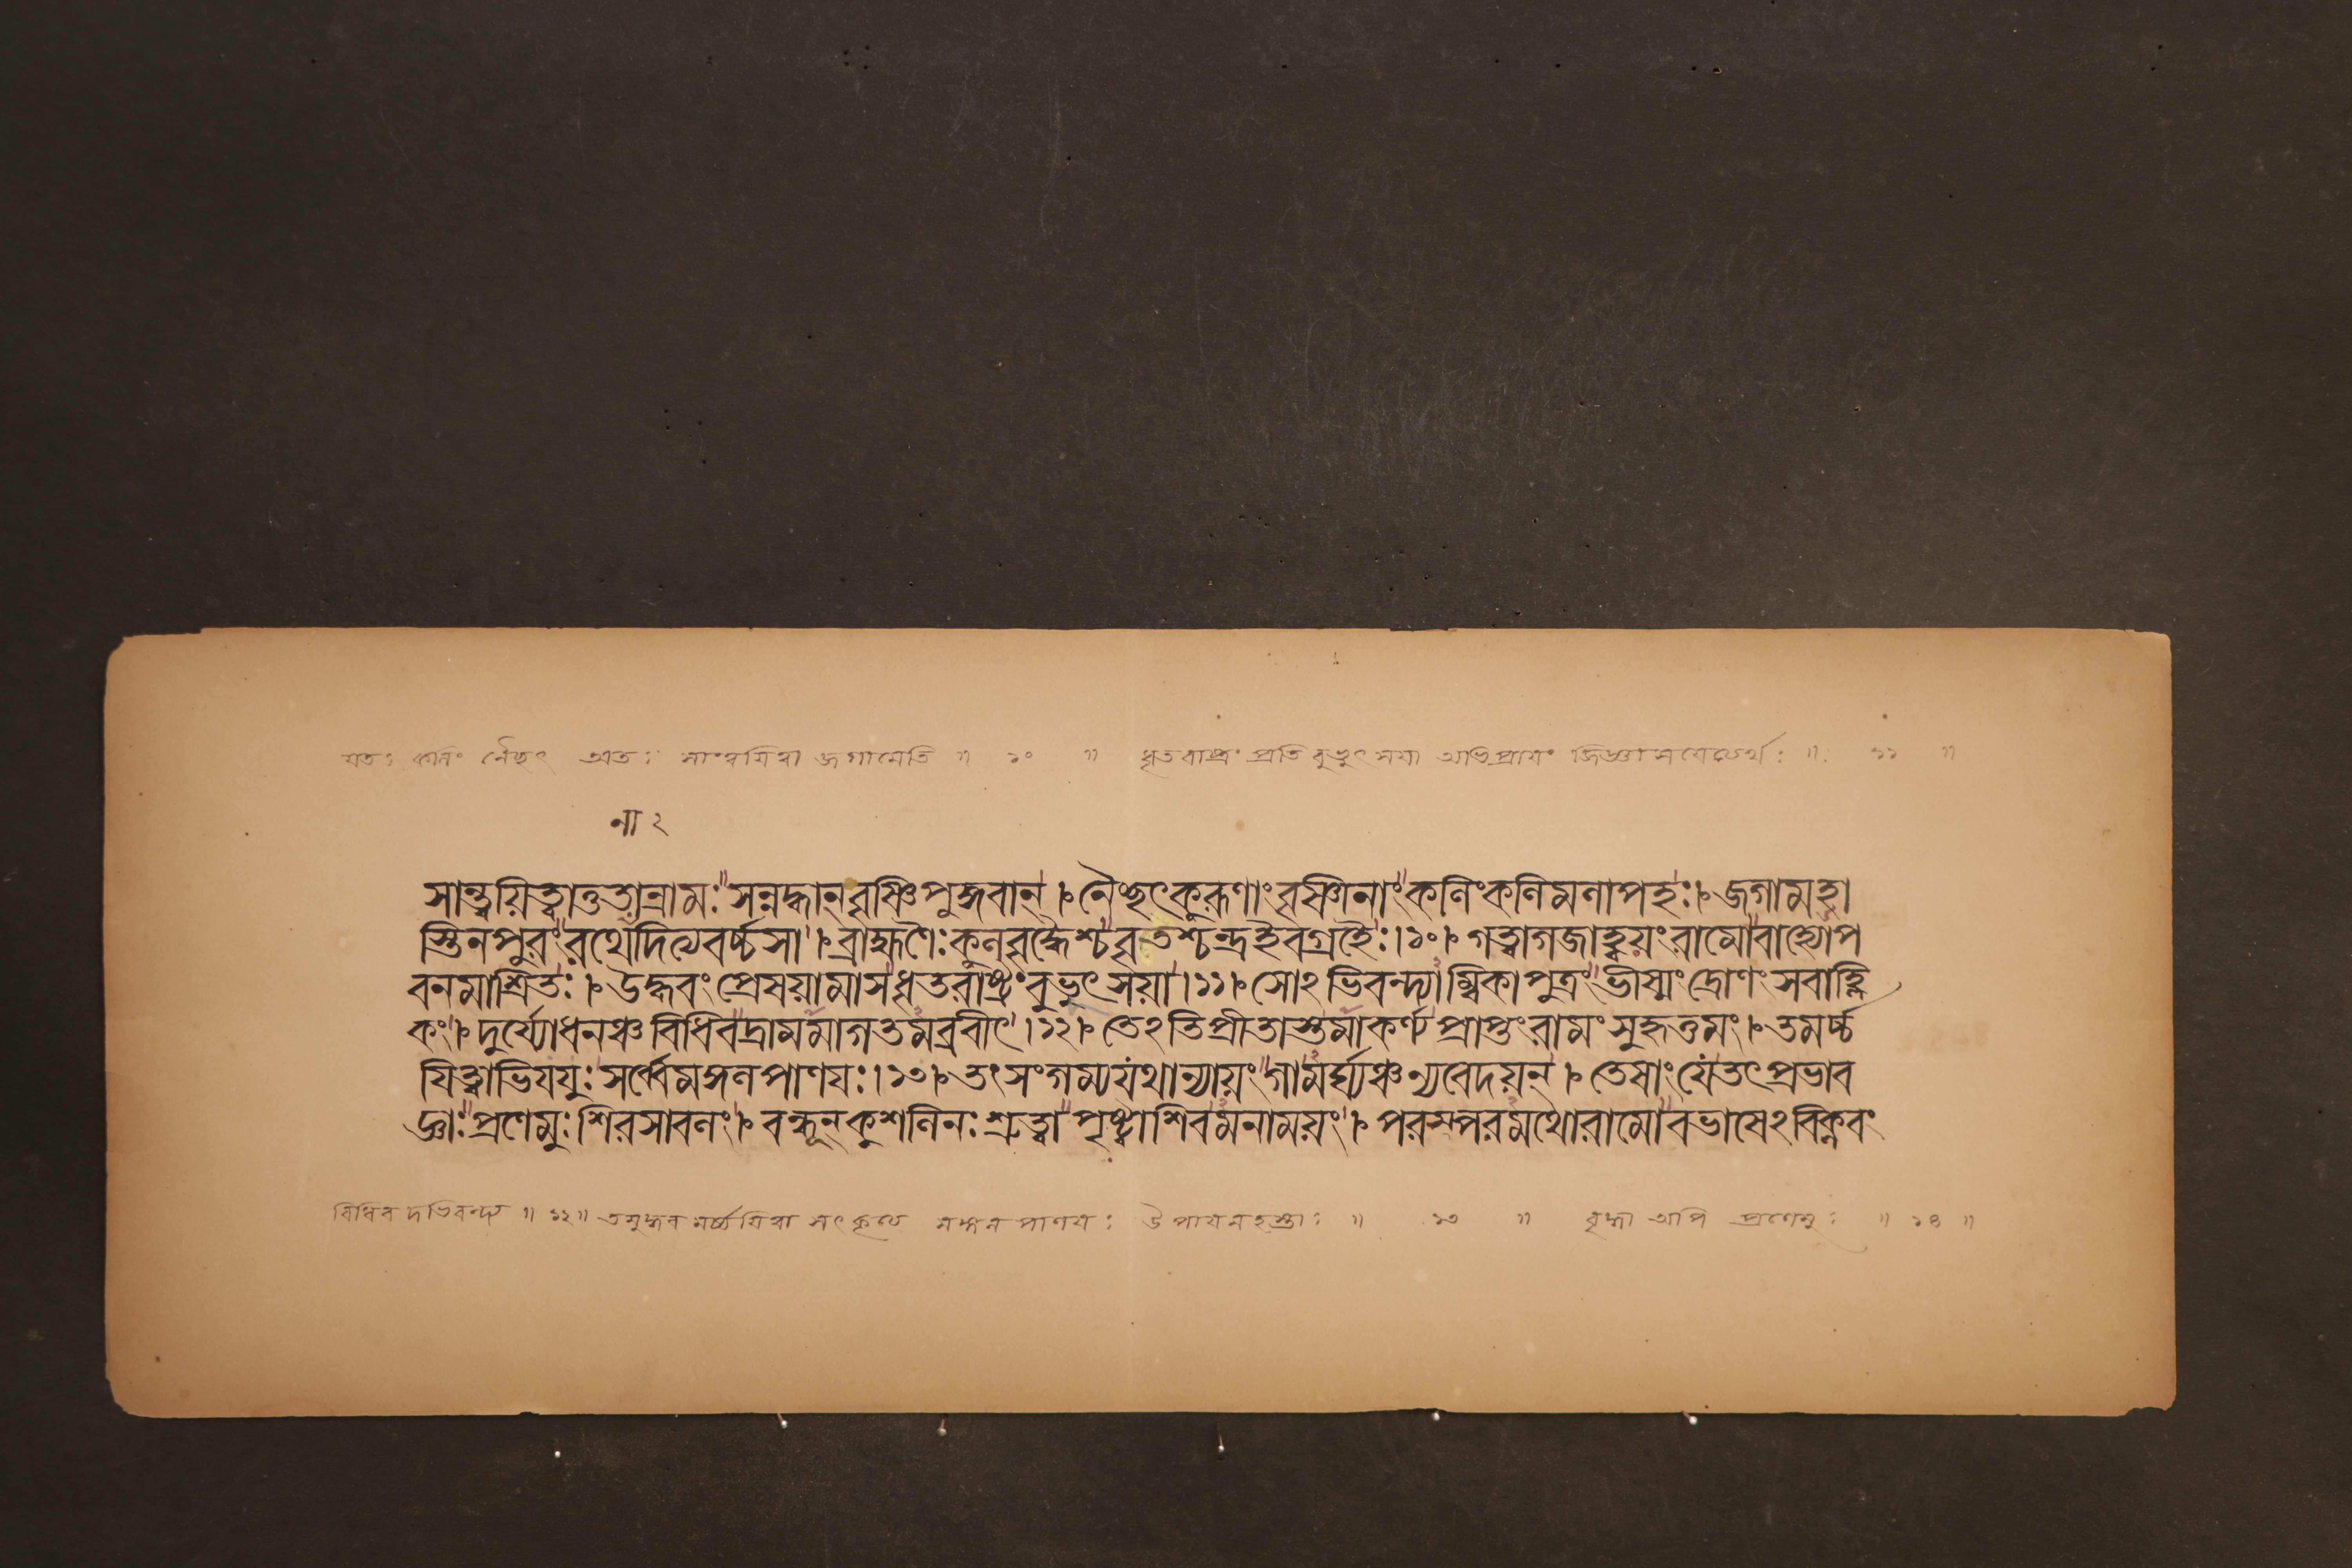 যতঃ কলিং নৈচ্ছৎ অতঃ সাংত্বয়িত্বা জগামেতি ॥ ১০ ॥ ধৃতরাষ্ট্রং প্রতি বুভুৎসয়া অভিপ্রায়ং জিজ্ঞাসয়েত্যর্থঃ ॥ ১১ ॥
না ২
সান্ত্বয়িত্বাতুতান্রামঃসন্নদ্ধান্বৃষ্ণিপুঙ্গবান্।নৈচ্ছৎকুরূণাংবৃষ্ণিনাংকলিংকলিমলাপহঃ।জগামহা
স্তিনপুরংরথেনাদিত্যবর্চ্চসা।ব্রাহ্মণৈঃকুলবৃদ্ধৈশ্চবৃতশ্চন্দ্রইবগ্রহৈঃ।১০।গত্বাগজাহ্বয়ংরামোবাহ্যোপ
বনমাশ্রিতঃ।উদ্ধবংপ্রেষয়ামাসধৃতরাষ্ট্রংবুভুৎসয়া।১১।সোঽভিবন্দ্যাম্বিকাপুত্রংভীষ্মংদ্রোণংসবাহ্লি
কং।দুর্য্যোধনঞ্চবিধিবদ্রামমাগতমব্রবীৎ।১২।তেঽতিপ্রীতাস্তমাকর্ণ্যপ্রাপ্তংরামংসুহৃত্তমং।তমর্চ্চ
য়িত্বাভিযযুঃসর্ব্বেমঙ্গলপাণয়ঃ।১৩।তংসংগম্যযথান্যায়ংগামর্ঘ্যঞ্চন্যবেদয়ন্।তেষাংযেতৎপ্রভাব
জ্ঞাঃপ্রণেমুঃশিরসাবলং।বন্ধূন্কুশলিনঃশ্রুত্বাপৃষ্ট্বাশিবমনাময়ং।পরস্পরমথোরামোবভাষেঽবিক্লবং
বিধিবদভিবন্দ্য ॥ ১২॥ তমুদ্ধবমর্চ্চয়িত্বা সৎকৃত্য মঙ্গলপাণয়ঃ উপায়নহস্তাঃ ॥ ১৩ ॥ বৃদ্ধা অপি প্রণেমুঃ ॥ ১৪ ॥